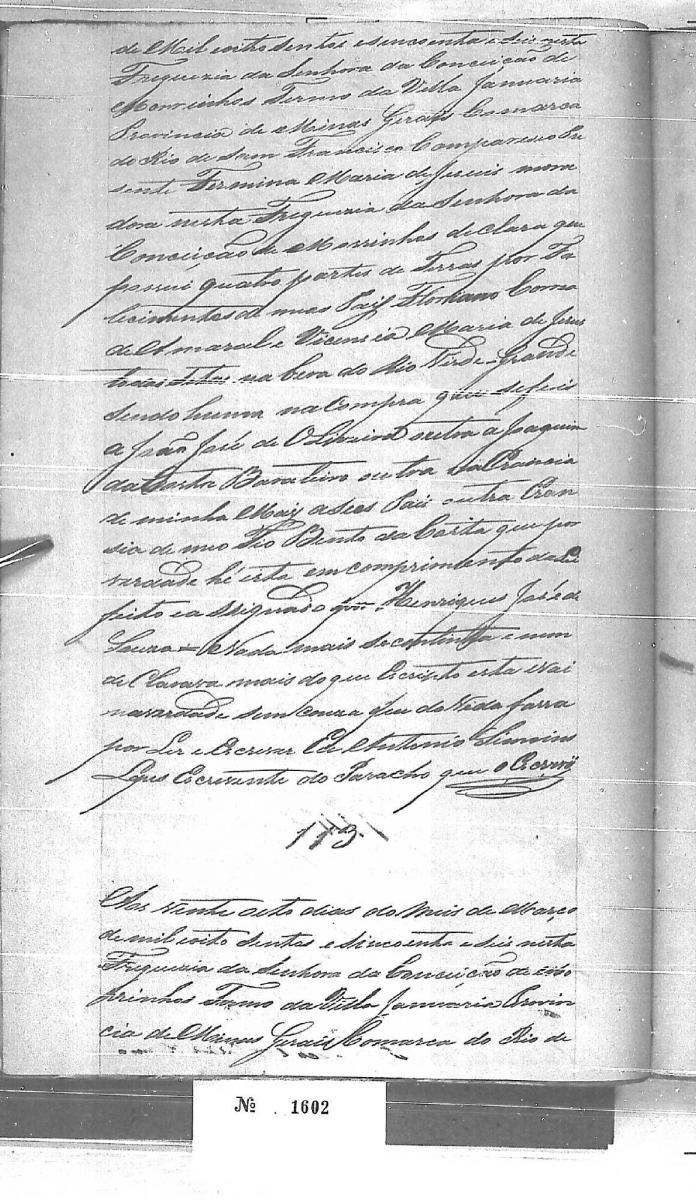 de Mil eoito sentos esincoenta e seis nesta
Freguezia da Senhora da Conceição de
Morrinhos Termo da Villa Januaria
Provincia de Minas Gerais Comarca
do Rio de Sam Francisco Compareceo Pre
sente Fermina Maria de Jezuis mora
dora nesta Freguezia da Senhora da
Conceição de Morrinhos de clara que
possui quatro partes de Terras por Fa
lecimentos de meus Paiz Floriano Correa
de Amaral e Vicencia Maria de Jezus
todas na bera do Rio Verde Grande
sendo huma na Compra que se fes
a João José de Oliveira outra a Joaquim
da Costa outra na Erancia
de minha Maiz a deos Pais outra Eran
sia de meo Tio Bento da Costa que por
vardade hé esta em comprimento da Lei
feito e a Signado por Henriques José de
Souza = Nada mais se continha e nem
de Clarava mais do que Escripto esta e vai
na vardade sem couza que du vida fassa
por Ler e Escrever Eu Antonio
Lopes Escrevente do Paracho que o Escrevy
113.
Aos vinte oito dias do Meis de Março
de mil eoito sentos e sincoenta e seis nesta
Freguezia da Senhora da Conceição de Mo
rrinhos Termo da Villa Januaria Provin
cia de Minas Gerais Comarca do Rio de
Nº 1602